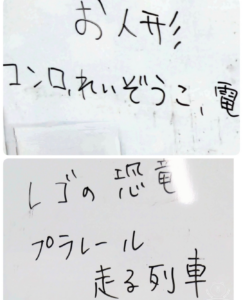 お人形
コンロ,れいぞうこ,電
レゴの恐竜
プラレール
走る列車